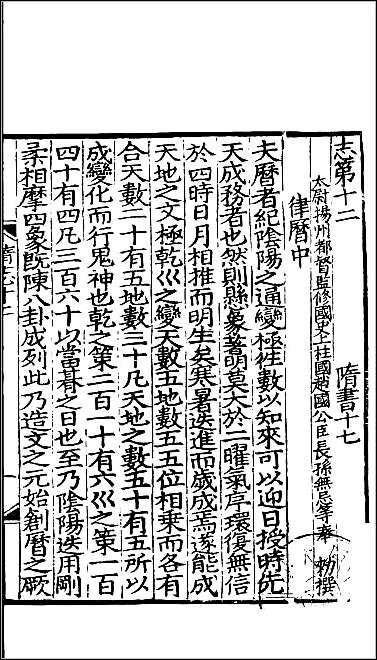 志第十二　隋書十七
太尉揚州都督監修國史上柱國趙國公臣長孫無忌等奉　勑撰
律曆中
夫曆者紀陰陽之通變極往數以知來可以迎日授時先
天成務者也然則縣象著明莫大於二曜氣序環復無信
於四時日月相推而明生矣寒暑迭進而歲成焉遂能成
天地之文極乾巛之變天數五地數五五位相乘而各有
合天數二十有五地數三十凡天地之數五十有五所以
成變化而行鬼神也乾之策二百一十有六巛之策一百
四十有四凡三百六十以當朞之日也至乃陰陽迭用剛
柔相摩四象旣陳八卦成列此乃造文之元始創曆之厥
隋志十二